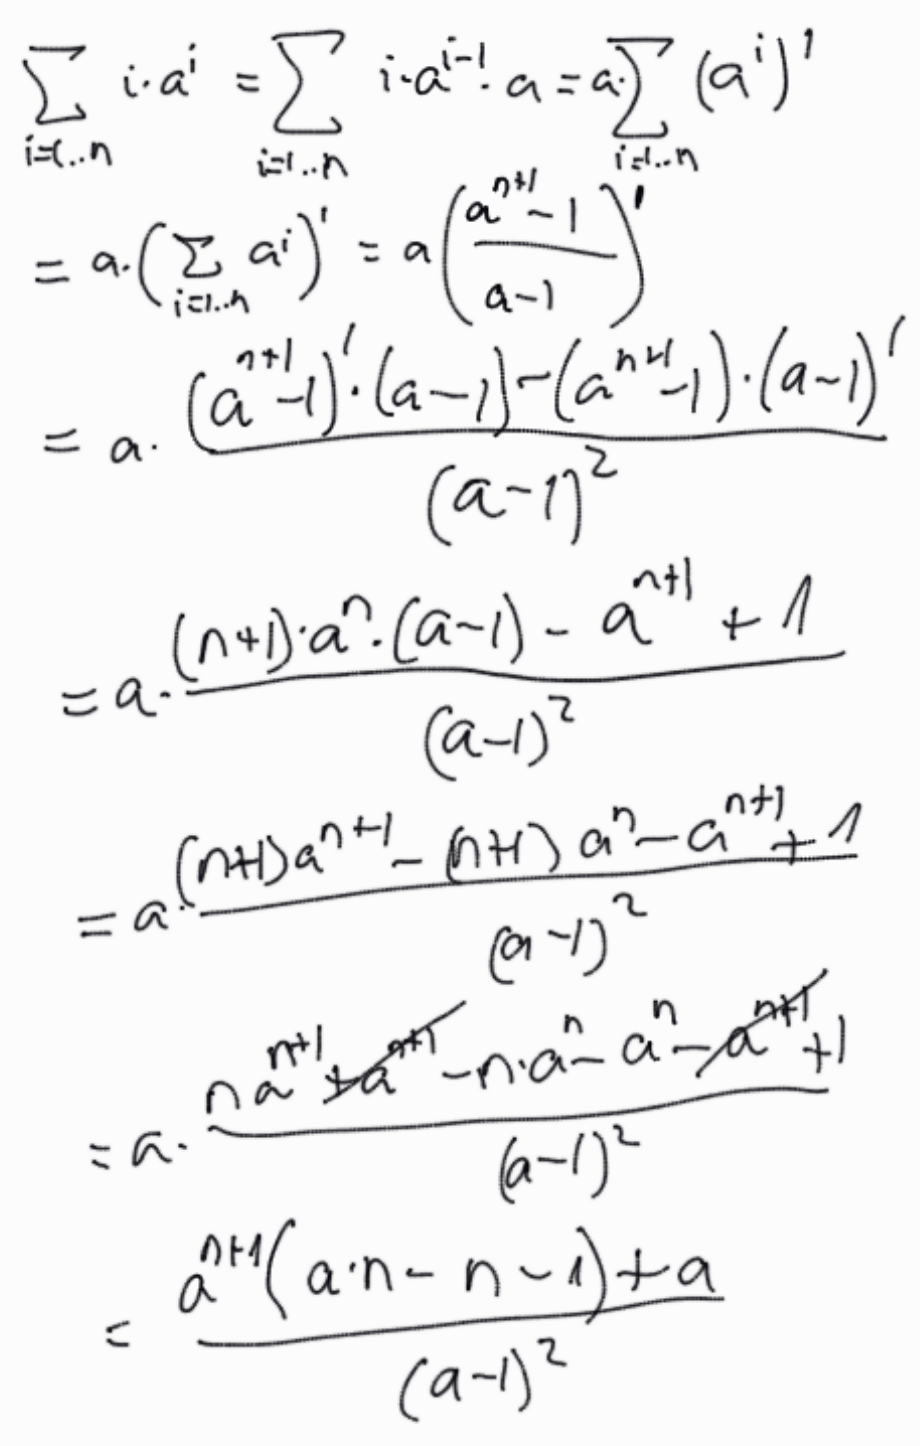 ∑_{i=1..n} i·a^i = ∑_{i=1..n} i·a^{i-1}·a = a·∑_{i=1..n} (a^i)'
= a·(∑_{i=1..n} a^i)' = a((a^{n+1}-1)/(a-1))'
= a·((a^{n+1}-1)'·(a-1)-(a^{n+1}-1)·(a-1)')/(a-1)^2
= a·((n+1)·a^n·(a-1)-a^{n+1}+1)/(a-1)^2
= a·((n+1)a^{n+1}-(n+1)a^n-a^{n+1}+1)/(a-1)^2
= a·(na^{n+1}+a^{n+1}-n·a^n-a^n-a^{n+1}+1)/(a-1)^2
= (a^{n+1}(a·n-n-1)+a)/(a-1)^2